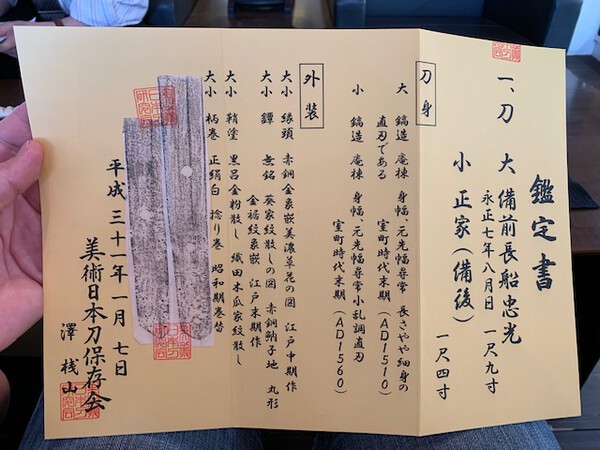 鑑定書
一、刀 大 備前長船忠光 一尺九寸
永正七年八月日
小 正家(備後) 一尺四寸
刀身
大 鎬造 庵棟 身幅、元先幅尋常 長さやや細身の
直刃である 室町時代末期(AD1510)
小 鎬造 庵棟 身幅、元先幅尋常小乱調直刃
室町時代末期(AD1560)
外装
大小 縁頭 赤銅金象嵌美濃草花の図 江戸中期作
大小 鐔 無銘 葵家紋散しの図 赤銅魶子地 丸形
金裾紋象嵌 江戸末期作
大小 鞘塗 黒呂金粉散し 織田木瓜家紋散し
大小 柄巻 正絹白 捻り巻 昭和期巻替
平成三十一年一月七日
美術日本刀保存会
澤 桟山